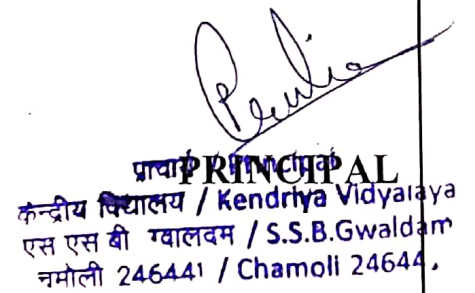 प्राचार्य / Principal
PRINCIPAL
केन्द्रीय विद्यालय / Kendriya Vidyalaya
एस एस बी ग्वालदम / S.S.B.Gwaldam
चमोली 246441 / Chamoli 24644